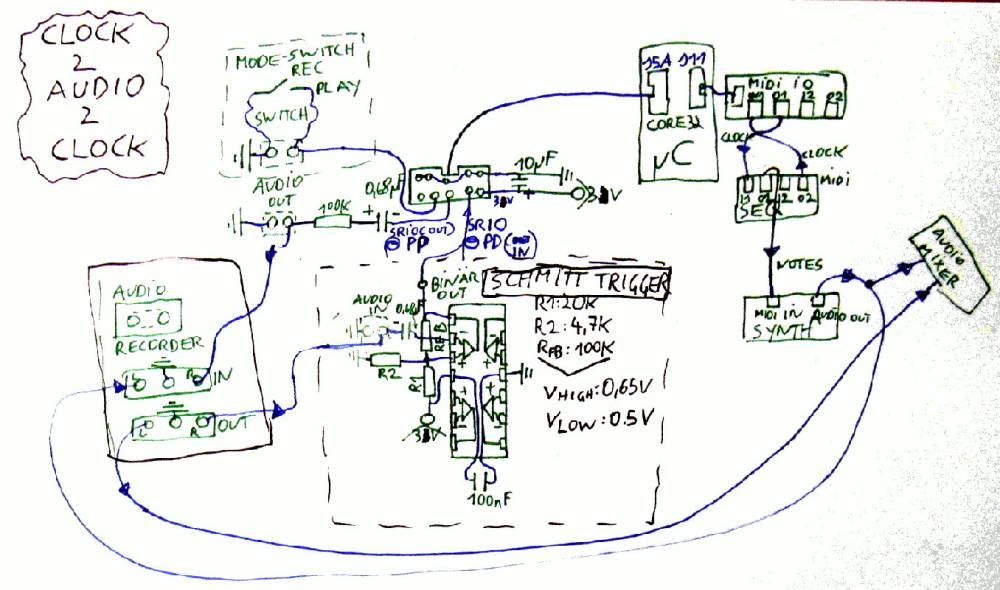 CLOCK
2
AUDIO
2
CLOCK
MODE-SWITCH
REC
PLAY
SWITCH
AUDIO
OUT
100K
+
-
0,68µF
10µF
+
J5A J11
CORE32
µC
MIDI IO
I1 O1 I2 O2
CLOCK
CLOCK
MIDI
I1 O1 I2 O2
SEQ
NOTES
MIDI IN AUDIO OUT
SYNTH
AUDIO
MIXER
SRIO (OUT)
PP
SRIO
PD (OUT IN)
BINAR
OUT
AUDIO
IN
0,68µF
RFB
R2
R1
100nF
SCHMITT TRIGGER
R1: 20K
R2: 4,7K
RFB: 100K
VHIGH: 0,65V
VLOW: 0.5V
AUDIO
RECORDER
L R IN
L R OUT